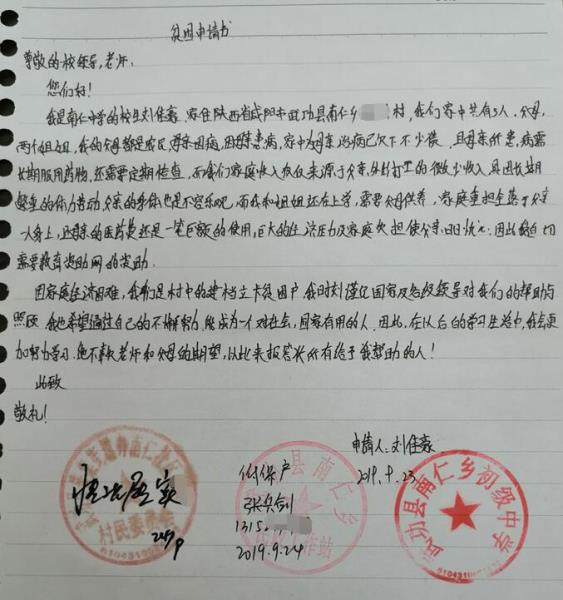 贫困申请书
尊敬的校领导,老师.
您们好!
我是南仁中学的校生刘佳豪 家住陕西省咸阳市武功县南仁乡 村,我们家中共有5人,父母,
两个姐姐,我的父母都是农民 母亲因病,因母亲患病,家中为母亲治病已欠下不少债 且母亲所患病需
长期服用药物,还需要定期检查,而我们家庭收入仅仅来源于父亲外出打工的微少收入,且因长期
繁重的体力劳动父亲的身体也是不容乐观,而我和姐姐还在上学,需要父母供养,家庭重担全落于父亲
一人身上,还母亲的医药费还是一笔巨额的使用,巨大的经济压力及家庭负担使父亲 因此 切
需要教育资助网的资助.
因家庭经济困难,我们是村中的建档立卡贫困户,我时刻谨记国家及各级领导对我们的帮助与
照顾 我也希望通过自己的不懈努力,能成为一个对社会,国家有用的人,因此,在以后的学习生活中,我会更
加努力学习,绝不辜负老师和父母的期望,以此来报答 所有给予我帮助的人!
此致
敬礼!
申请人:刘佳豪
2019.9.23
情况属实
低保户
1315.
2019.9.24
南仁
村民委员会
县南仁乡
工作站
武功县南仁乡初级中学